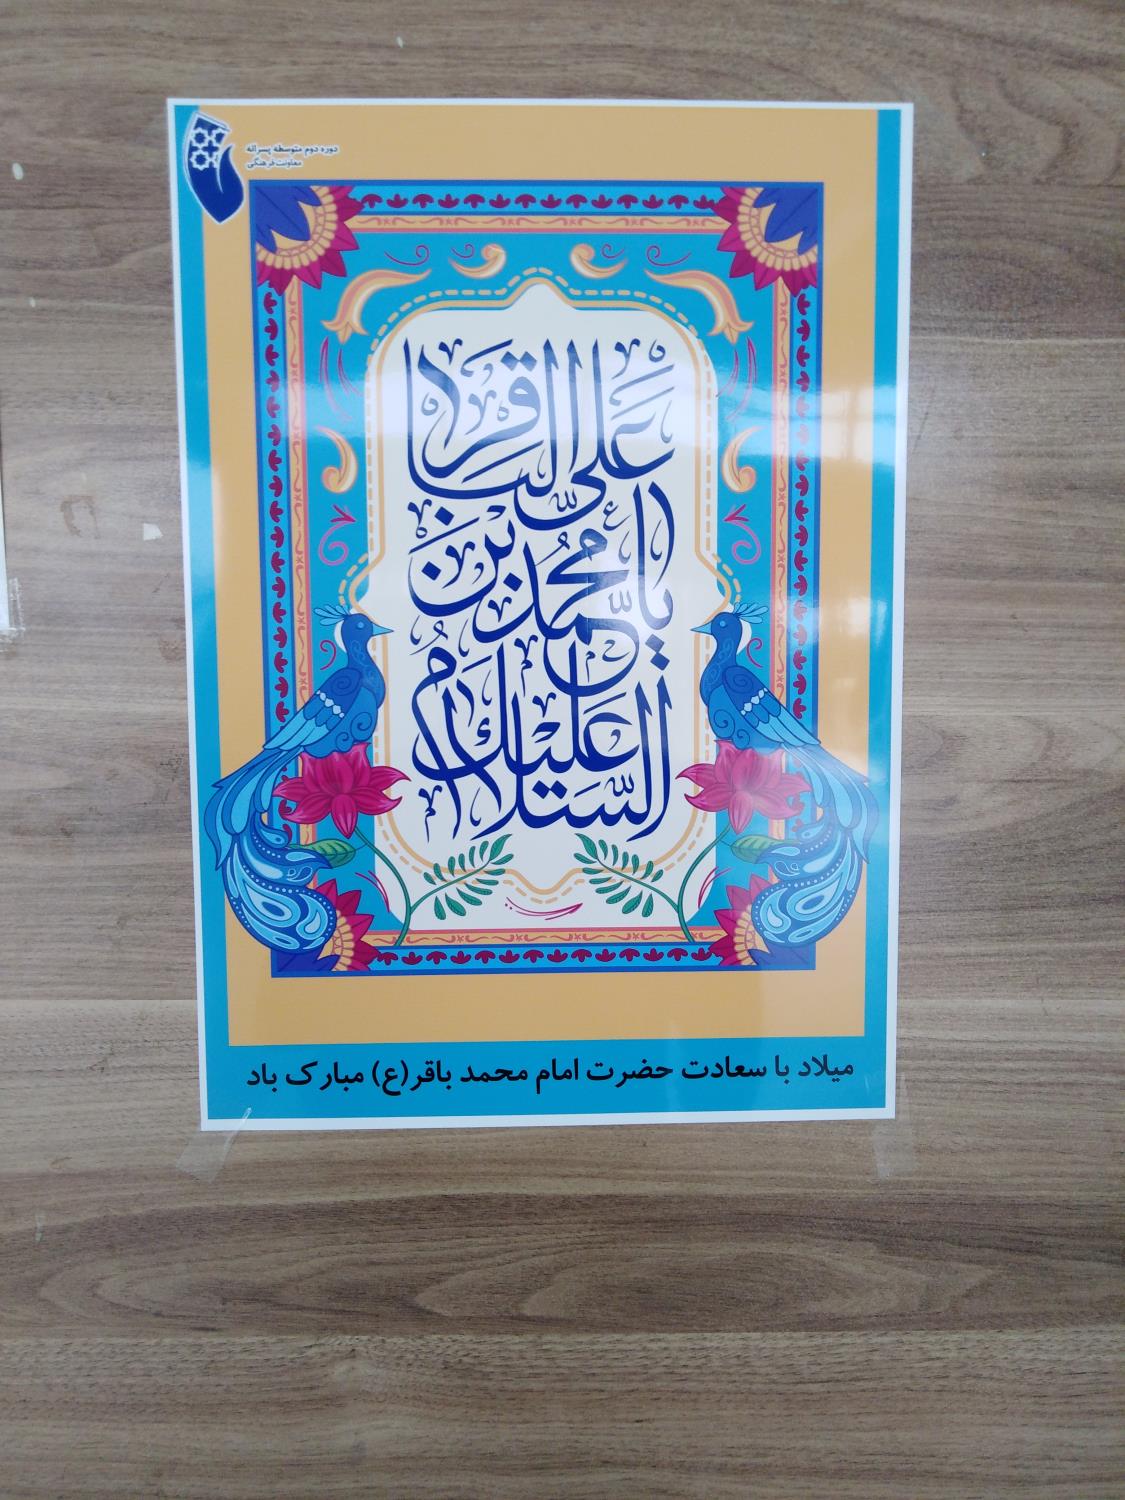 دوره دوم متوسطه پسرانه
معاونت فرهنگی
السَّلامُ عَلَیْكَ
یا مُحمّد بن
عَلیّ الباقر
میلاد با سعادت حضرت امام محمد باقر(ع) مبارک باد